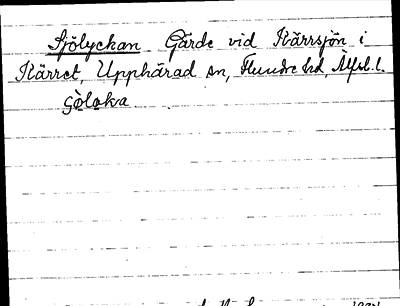 Sjölyckan Gärde vid Kärrsjön i
Kärret, Upphärad sn, Flundre hd, Älvsb. l.